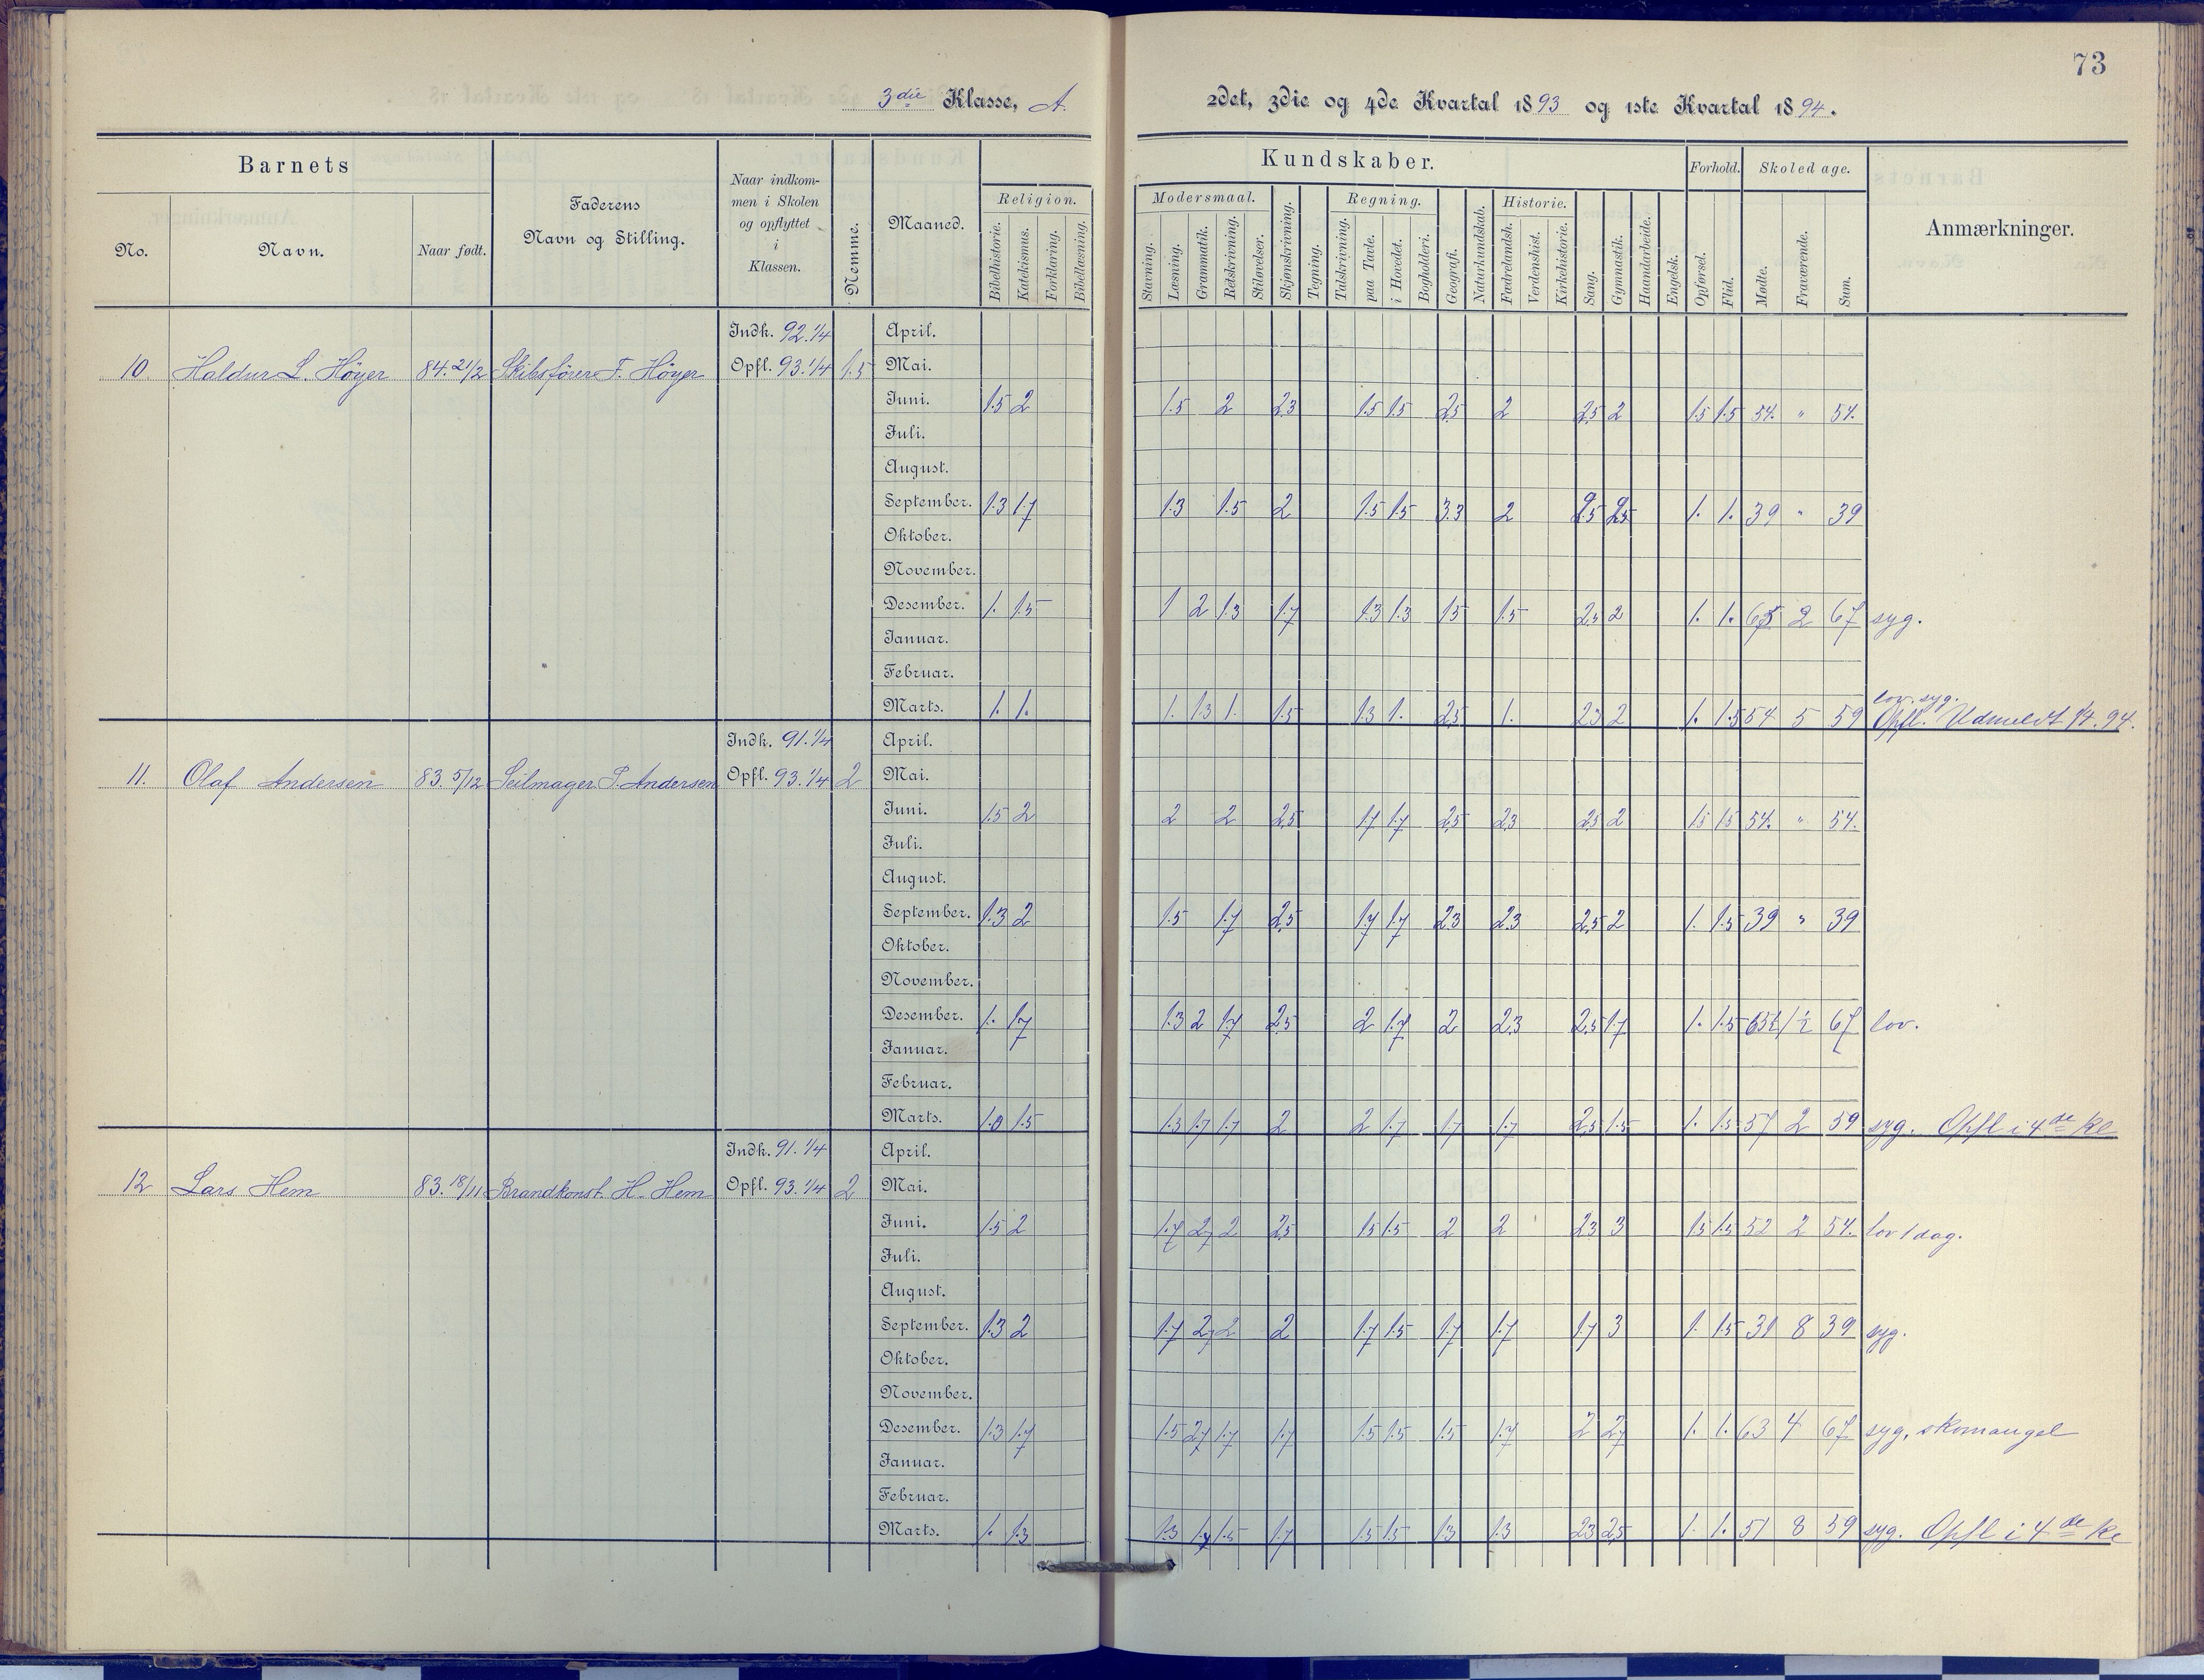 73
3die Klasse, A.
2det, 3die og 4de Kvartal 1893 og 1ste Kvartal 1894.
Barnets
No.
Navn.
Naar født.
Faderens
Navn og Stilling.
Naar indkom-
men i Skolen
og opflyttet
i
Klassen.
Nemme.
Maaned.
Kundskaber.
Religion.
Bibelhistorie. Katekismus. Forklaring. Bibellæsning.
Modersmaal.
Stavning. Læsning. Grammatik. Retskrivning. Stiløvelser. Skjønskrivning. Tegning.
Regning.
Talskrivning. paa Tavle. i Hovedet. Bogholderi. Geografi. Naturkundskab.
Historie.
Fædrelandsh. Verdenshist. Kirkehistorie. Sang. Gymnastik. Haandarbeide. Engelsk.
Forhold.
Opførsel. Flid.
Skoledage.
Mødte. Fraværende. Sum.
Anmærkninger.
Indk. 92.1/4 April.
10 Haldur L. Höyer 84.21/2 Skibsförer F. Höyer Opfl. 93.1/4 1.5 Mai.
Juni. 1.5 2 1.5 2 2.3 1.5 1.5 2.5 2 2.5 2 1.5 1.5 54. " 54.
Juli.
August.
September. 1.3 1.7 1.3 1.5 2 1.5 1.5 3.3 2 2.5 2.5 1. 1. 39 " 39
Oktober.
November.
Desember. 1. 1.5 1 2 1.3 1.7 1.3 1.3 1.5 1.5 2.5 2 1. 1. 65 2 67 syg.
Januar.
Februar.
lov. syg.
Marts. 1. 1. 1. 1.3 1. 1.5 1.3 1. 2.5 1. 2.3 2 1. 1.5 54 5 59 Opfl. Udmeldt 1/4. 94.
Indk. 91.1/4 April.
11. Olaf Andersen 83.5/12 Seilmager P. Andersen Opfl. 93.1/4 2 Mai.
Juni. 1.5 2 2 2 2.5 1.7 1.7 2.5 2.3 2.5 2 1.5 1.5 54. " 54.
Juli.
August.
September. 1.3 2 1.5 1.7 2.5 1.7 1.7 2.3 2.3 2.5 2 1. 1.5 39 " 39
Oktober.
November.
Desember. 1. 1.7 1.3 2 1.7 2.5 2 1.7 2 2.3 2.5 1.7 1. 1.5 65½ 1½ 67 lov.
Januar.
Februar.
Marts. 1.0 1.5 1.3 1.7 1.7 2 2 1.7 1.7 1.7 2.5 1.5 1. 1.5 57 2 59 syg. Opfl i 4de Kl
Indk. 91.1/4 April.
12 Lars Hem 83.18/11 Brandkonst. H. Hem Opfl. 93.1/4 2 Mai.
Juni. 1.5 2 1.7 2.7 2 2.5 1.5 1.5 2 2 2.3 3 1.5 1.5 52 2 54. lov 1 dag.
Juli.
August.
September. 1.3 2 1.7 2.7 2 2 1.7 1.5 1.7 1.7 1.7 3 1. 1.5 31 8 39 syg.
Oktober.
November.
Desember. 1.3 1.7 1.5 2.7 1.7 1.7 1.5 1.5 1.5 1.7 2 2.7 1. 1. 63 4 67 syg, skomangel
Januar.
Februar.
Marts. 1. 1.3 1.3 1.7 1.5 1.7 1.5 1.5 1.3 1.3 2.3 2.5 1. 1. 51 8 59 syg. Opfl i 4de Kl